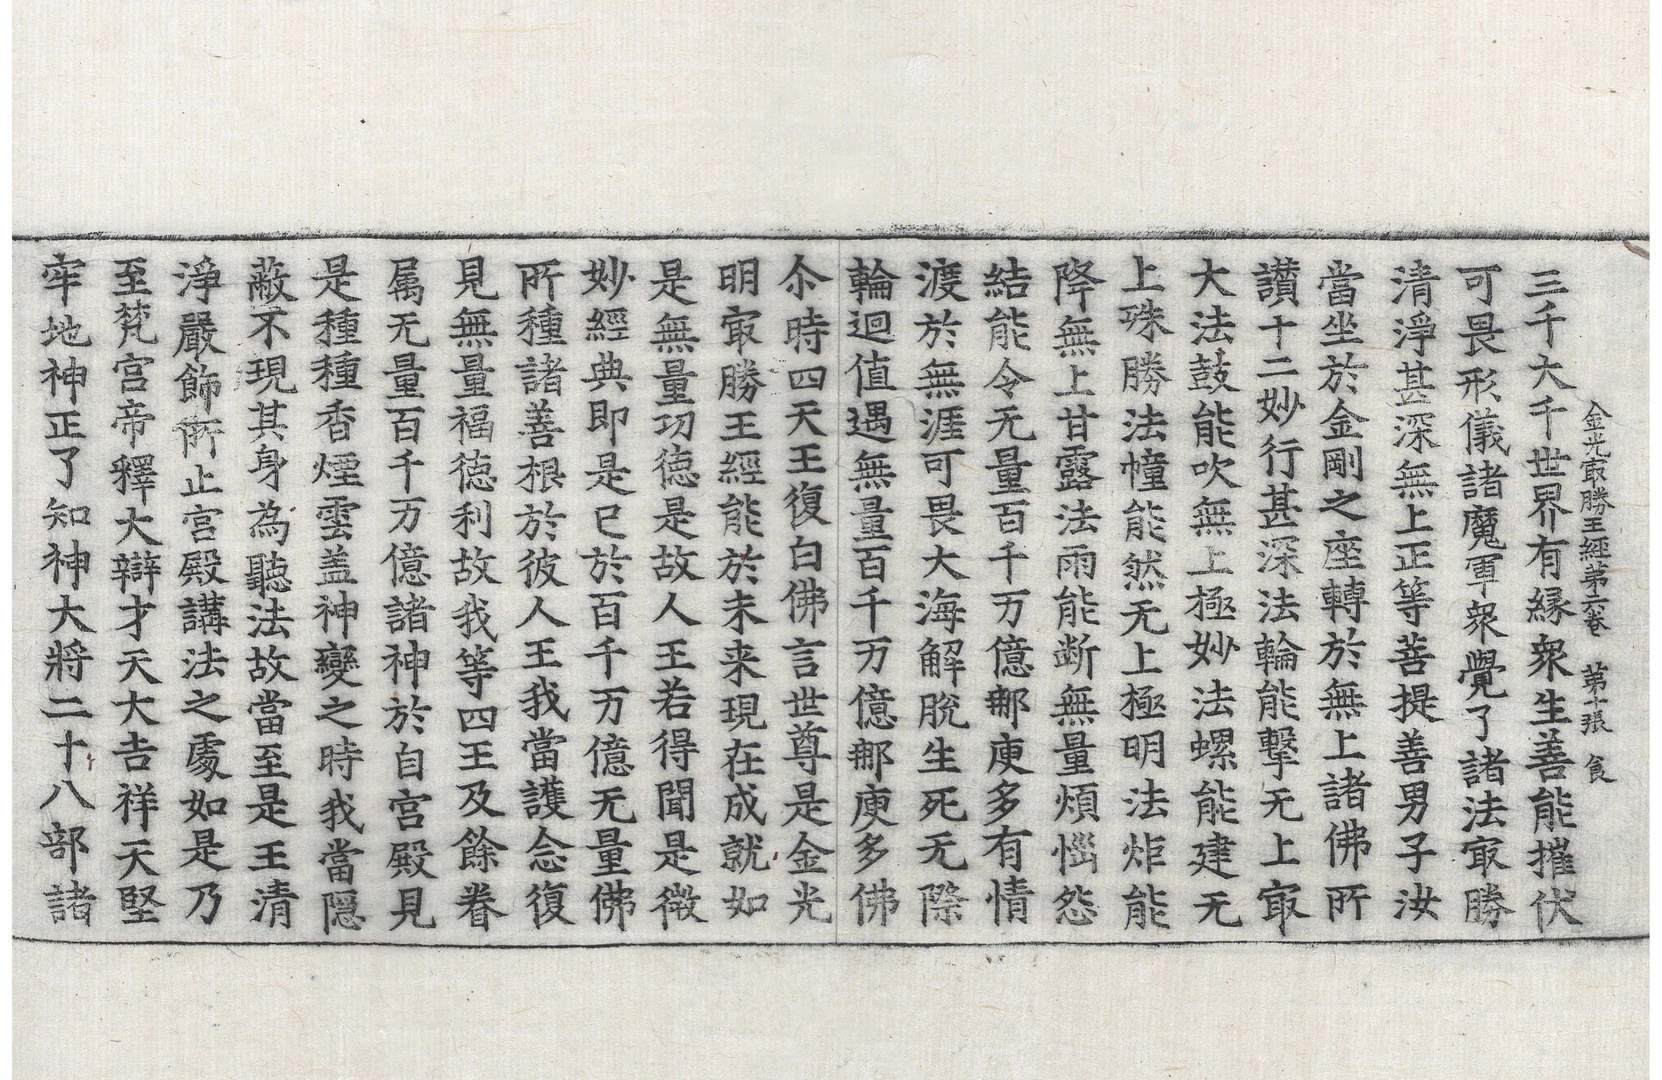 金光㝡勝王經第六卷　第十張　食
三千大千世界有縁衆生善能摧伏
可畏形儀諸魔軍衆覺了諸法㝡勝
清淨甚深無上正等菩提善男子汝
當坐於金剛之座轉於無上諸佛所
讃十二妙行甚深法輪能擊无上㝡
大法鼓能吹無上極妙法螺能建无
上殊勝法幢能然无上極明法炬能
降無上甘露法雨能斷無量煩惱怨
結能令无量百千万億那庾多有情
渡於無涯可畏大海解脫生死无際
輪迴值遇無量百千万億那庾多佛
尒時四天王復白佛言世尊是金光
明㝡勝王經能於未来現在成就如
是無量功徳是故人王若得聞是微
妙經典即是已於百千万億无量佛
所種諸善根於彼人王我當護念復
見無量福徳利故我等四王及餘眷
属无量百千万億諸神於自宮殿見
是種種香煙雲盖神變之時我當隱
蔽不現其身為聽法故當至是王清
淨嚴飾所止宮殿講法之處如是乃
至梵宮帝釋大辯才天大吉祥天堅
牢地神正了知神大將二十八部諸